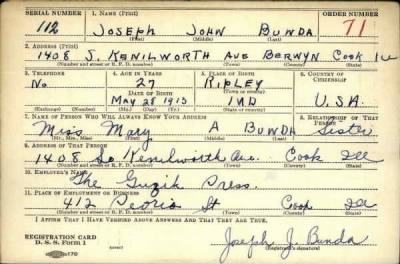 SERIAL NUMBER 1. NAME (Print) ORDER NUMBER
112 JOSEPH JOHN BUNDA 71
(First) (Middle) (Last)
2. ADDRESS (Print)
1408 S. KENILWORTH AVE BERWYN COOK ILL
(Number and street or R. F. D. number) (Town) (County) (State)
3. TELEPHONE 4. AGE IN YEARS 5. PLACE OF BIRTH 6. COUNTRY OF CITIZENSHIP
No 27 RIPLEY
DATE OF BIRTH (Town or county)
MAY 28 1913 IND U.S.A.
(Exchange) (Number) (Mo.) (Day) (Yr.) (State or country)
7. NAME OF PERSON WHO WILL ALWAYS KNOW YOUR ADDRESS 8. RELATIONSHIP OF THAT PERSON
Miss Mary A BUNDA Sister
(Mr., Mrs., Miss) (First) (Middle) (Last)
9. ADDRESS OF THAT PERSON
1408 So Kenilworth Ave. Cook Ill
(Number and street or R. F. D. number) (Town) (County) (State)
10. EMPLOYER'S NAME
The Guzik Press.
11. PLACE OF EMPLOYMENT OR BUSINESS
412 Peoria St Cook Ill
(Number and street or R. F. D. number) (Town) (County) (State)
I AFFIRM THAT I HAVE VERIFIED ABOVE ANSWERS AND THAT THEY ARE TRUE.
REGISTRATION CARD
D. S. S. Form 1 Joseph J. Bunda
(Registrant's signature)